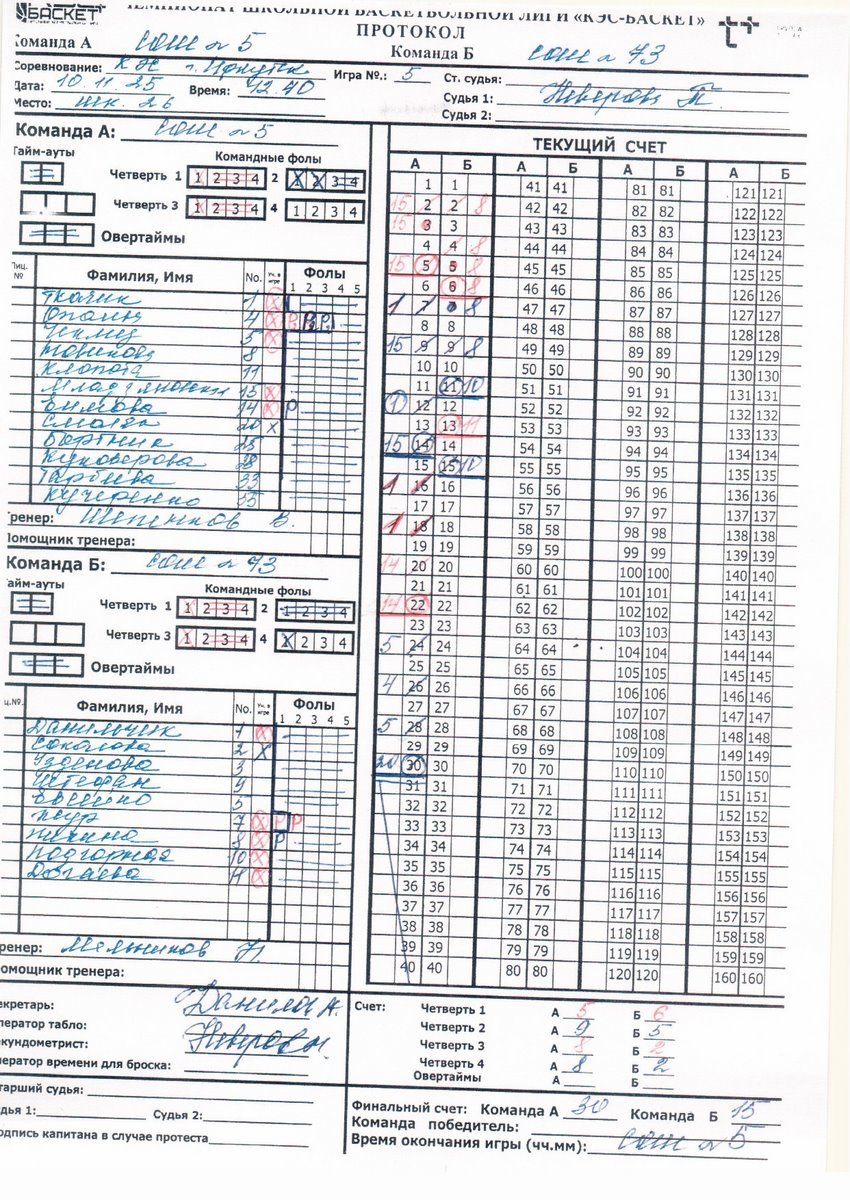 БАСКЕТ
ЧЕМПИОНАТ ШКОЛЬНОЙ БАСКЕТБОЛЬНОЙ ЛИГИ «КЭС-БАСКЕТ»
ПРОТОКОЛ
Команда А сош № 5 Команда Б сош № 73
Соревнование: Игра №.: 5 Ст. судья:
Дата: 10.11.25 Время: 12.40 Судья 1: Неверова Т.
Место: шк. 26 Судья 2:
Команда А: сош № 5
Тайм-ауты Командные фолы
Четверть 1 1 2 3 4 2 X X 3 4
Четверть 3 1 2 3 4 4 1 2 3 4
Овертаймы
Лиц. № Фамилия, Имя No. Уч. в игре Фолы
1 2 3 4 5
Ткачик 1 X
4 X P2 P2 P2
5 X
Новикова 8
Клопота 11
13 X
14 X P
20 X
25
Куковерова
33
Кучеренко 55
Тренер: В.
Помощник тренера:
Команда Б: сош № 73
Тайм-ауты Командные фолы
Четверть 1 1 2 3 4 2 1 2 3 4
Четверть 3 1 2 3 4 4 X 2 3 4
Овертаймы
Ц.№. Фамилия, Имя No. Уч. в игре Фолы
1 2 3 4 5
Данильчик 1 X
Соколова 2 X
Узденова 3
Штефан 4
5
7 X P P
8 X P
Подгорная 10 X
11 X
Тренер: Мельников
Помощник тренера:
ТЕКУЩИЙ СЧЕТ
А Б А Б А Б А Б
1 1 41 41 81 81 121 121
15 2 2 8 42 42 82 82 122 122
15 3 3 43 43 83 83 123 123
4 4 8 44 44 84 84 124 124
15 5 5 8 45 45 85 85 125 125
6 6 8 46 46 86 86 126 126
1 7 7 8 47 47 87 87 127 127
8 8 48 48 88 88 128 128
15 9 9 8 49 49 89 89 129 129
10 10 50 50 90 90 130 130
11 11 10 51 51 91 91 131 131
1 12 12 52 52 92 92 132 132
13 13 11 53 53 93 93 133 133
15 14 14 54 54 94 94 134 134
15 15 10 55 55 95 95 135 135
1 16 16 56 56 96 96 136 136
17 17 57 57 97 97 137 137
1 18 18 58 58 98 98 138 138
19 19 59 59 99 99 139 139
14 20 20 60 60 100 100 140 140
21 21 61 61 101 101 141 141
14 22 22 62 62 102 102 142 142
23 23 63 63 103 103 143 143
5 24 24 64 64 104 104 144 144
25 25 65 65 105 105 145 145
4 26 26 66 66 106 106 146 146
27 27 67 67 107 107 147 147
5 28 28 68 68 108 108 148 148
29 29 69 69 109 109 149 149
20 30 30 70 70 110 110 150 150
31 31 71 71 111 111 151 151
32 32 72 72 112 112 152 152
33 33 73 73 113 113 153 153
34 34 74 74 114 114 154 154
35 35 75 75 115 115 155 155
36 36 76 76 116 116 156 156
37 37 77 77 117 117 157 157
38 38 78 78 118 118 158 158
39 39 79 79 119 119 159 159
40 40 80 80 120 120 160 160
Секретарь: Данила А.
Оператор табло:
Секундометрист:
Оператор времени для броска:
Старший судья:
Судья 1: Судья 2:
Подпись капитана в случае протеста
Счет: Четверть 1 А 5 Б 6
Четверть 2 А 9 Б 5
Четверть 3 А 8 Б 2
Четверть 4 А 8 Б 2
Овертаймы А Б
Финальный счет: Команда А 30 Команда Б 15
Команда победитель:
Время окончания игры (чч.мм): сош № 5